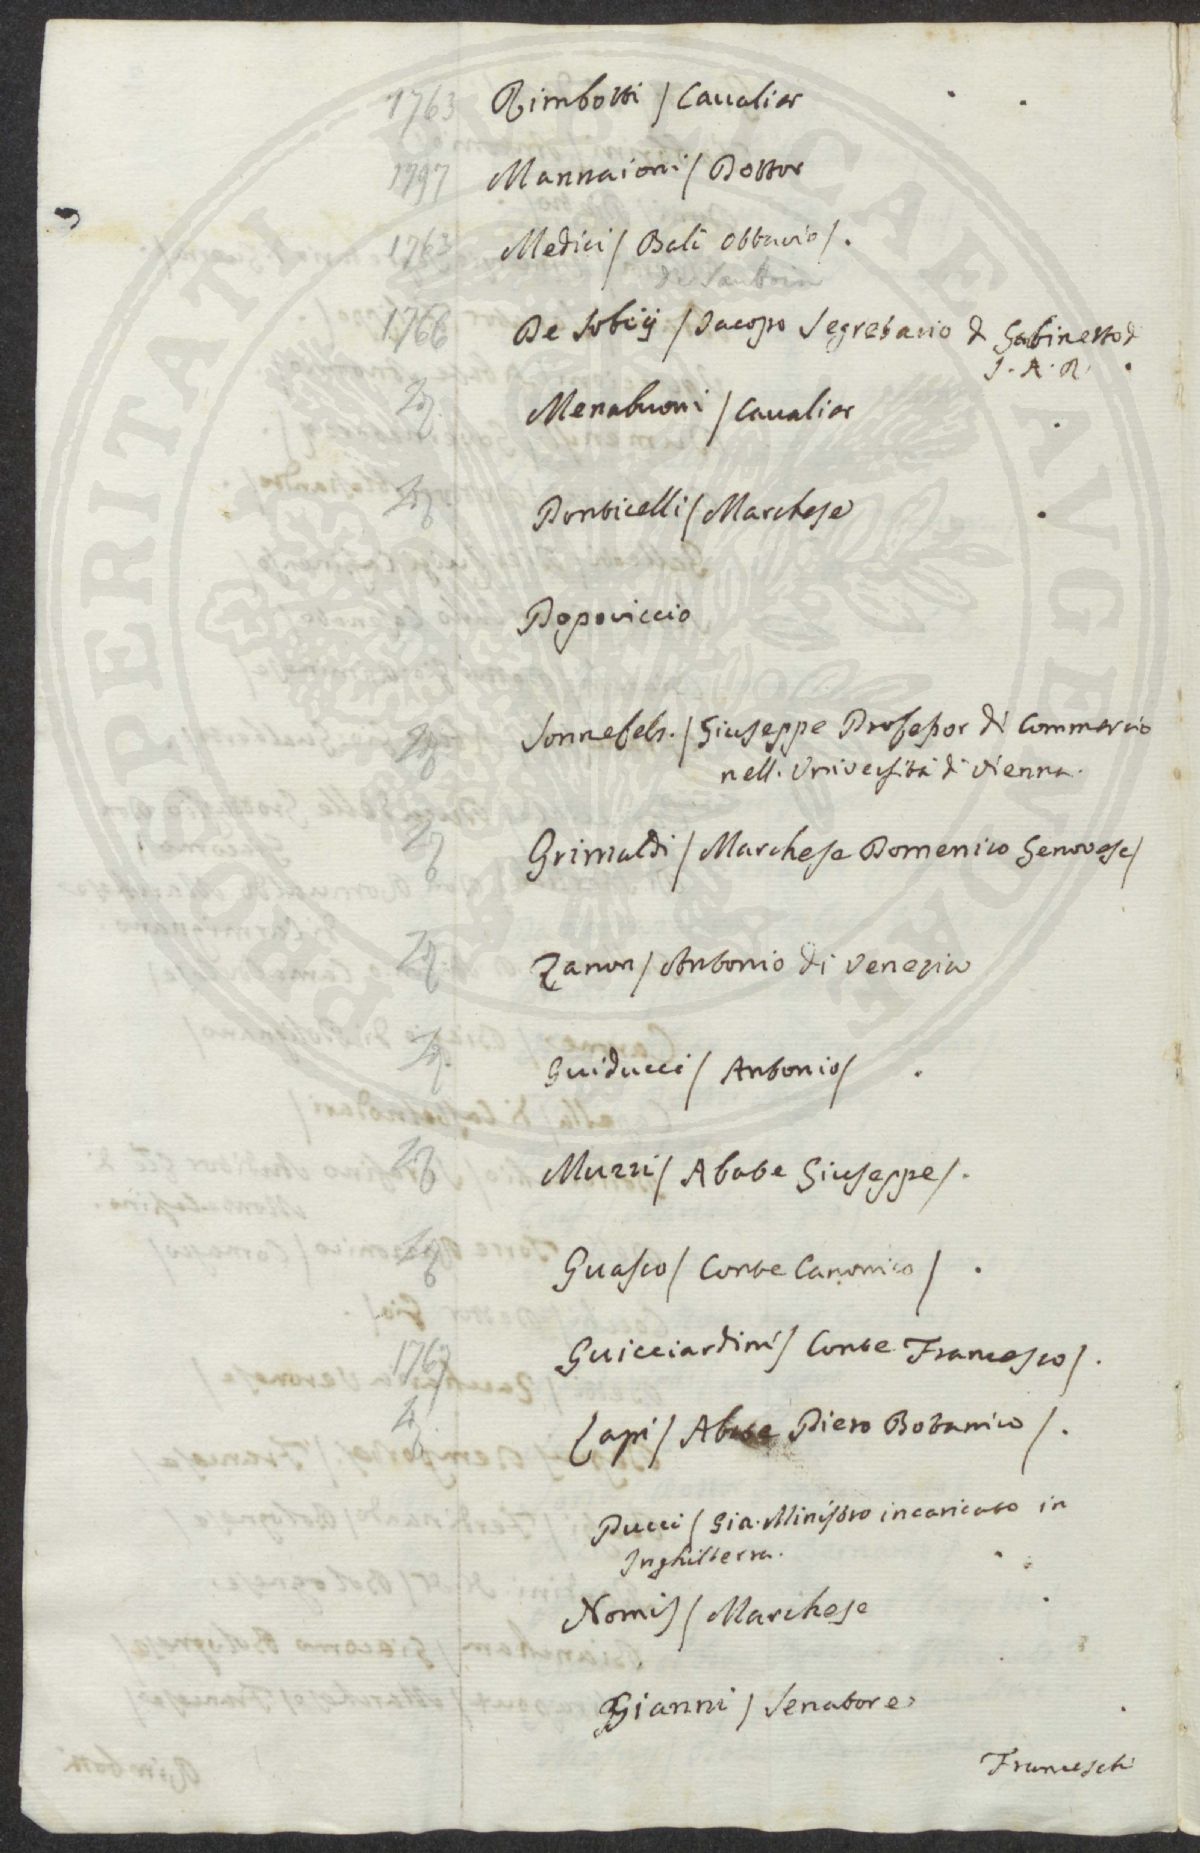 1763 Rimbotti / Cavalier
1797 Mannaioni / Dottor
1763 Medici / Balì Ottavio / .
de Sauboin
1766 De Sobiÿ / Jacopo Segretario di Gabinetto di
S. A. R.
Menabuoni / Cavalier
Ponticelli / Marchese
Popoviccio
Sonnefels. / Giuseppe Professor di Commercio
nell. Università di Vienna.
Grimaldi / Marchese Domenico Genovese /
Zanon / Antonio di Venezia
Guiducci / Antonio / .
Muzzi / Abate Giuseppe / .
Guasco / Conte Canonico / .
1767 Guicciardini / Conte Francesco / .
Lapi / Abate Piero Botanico / .
Pucci / Già Ministro incaricato in
Inghilterra.
Nomis / Marchese
Gianni / Senatore
Franceschi
PROSPERITATI PUBLICAE AUGENDAE